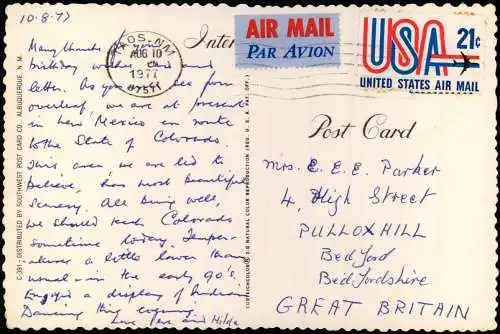 10-8-77
Many thanks for your
birthday wishes card and
letter. As you will see from
overleaf, we are at present
in New Mexico en route
to the State of Colorado.
This area we are led to
believe, has most beautiful
scenery. All being well,
we should reach Colorado
sometime today. Temper-
atures a little lower than
usual - in the early 90's.
Enjoyed a display of Indian
Dancing this evening.
Love Perc and Hilda
C-391 - DISTRIBUTED BY SOUTHWEST POST CARD CO., ALBUQUERQUE, N. M.
TAOS, NM
AUG 10
1977
87571
AIR MAIL
PAR AVION
USA 21c
UNITED STATES AIR MAIL
Post Card
Mrs. E. E. E. Parker
4, High Street
PULLOXHILL
Bedford
Bedfordshire
GREAT BRITAIN